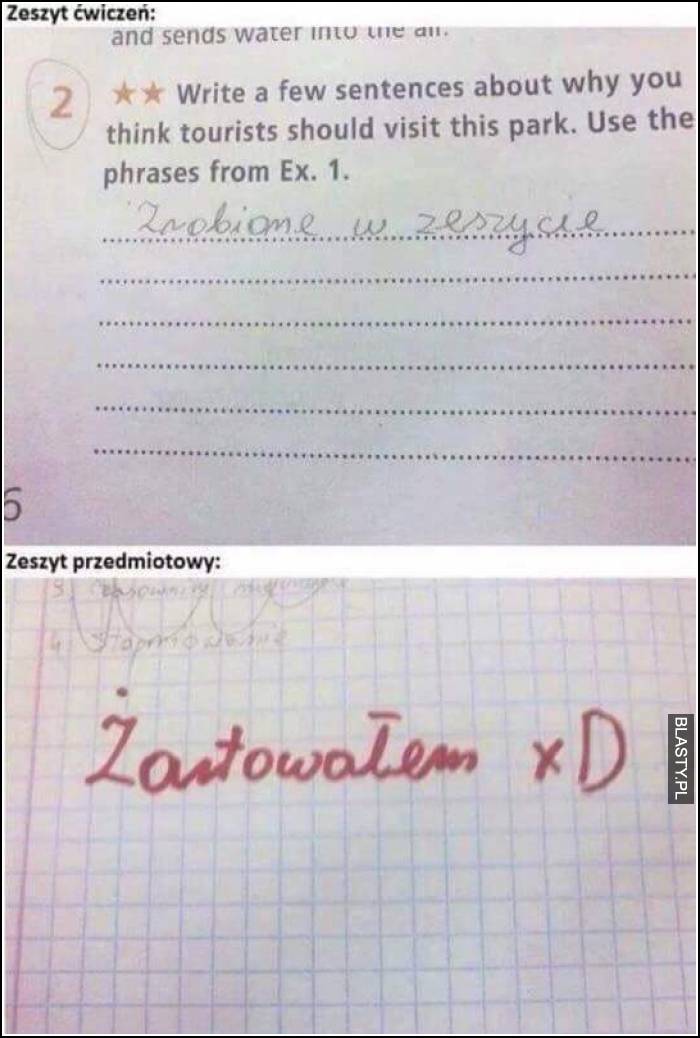 Zeszyt ćwiczeń:
and sends water into the air.
2 ★★ Write a few sentences about why you
think tourists should visit this park. Use the
phrases from Ex. 1.
Zrobione w zeszycie
6
Zeszyt przedmiotowy:
3. Czasowniki
4. Stopniowanie
Żartowałem xD
BLASTY.PL